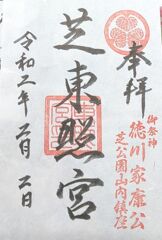 奉拝
御祭神
徳川家康公
芝公園山内鎮座
芝東照宮
令和二年二月二日